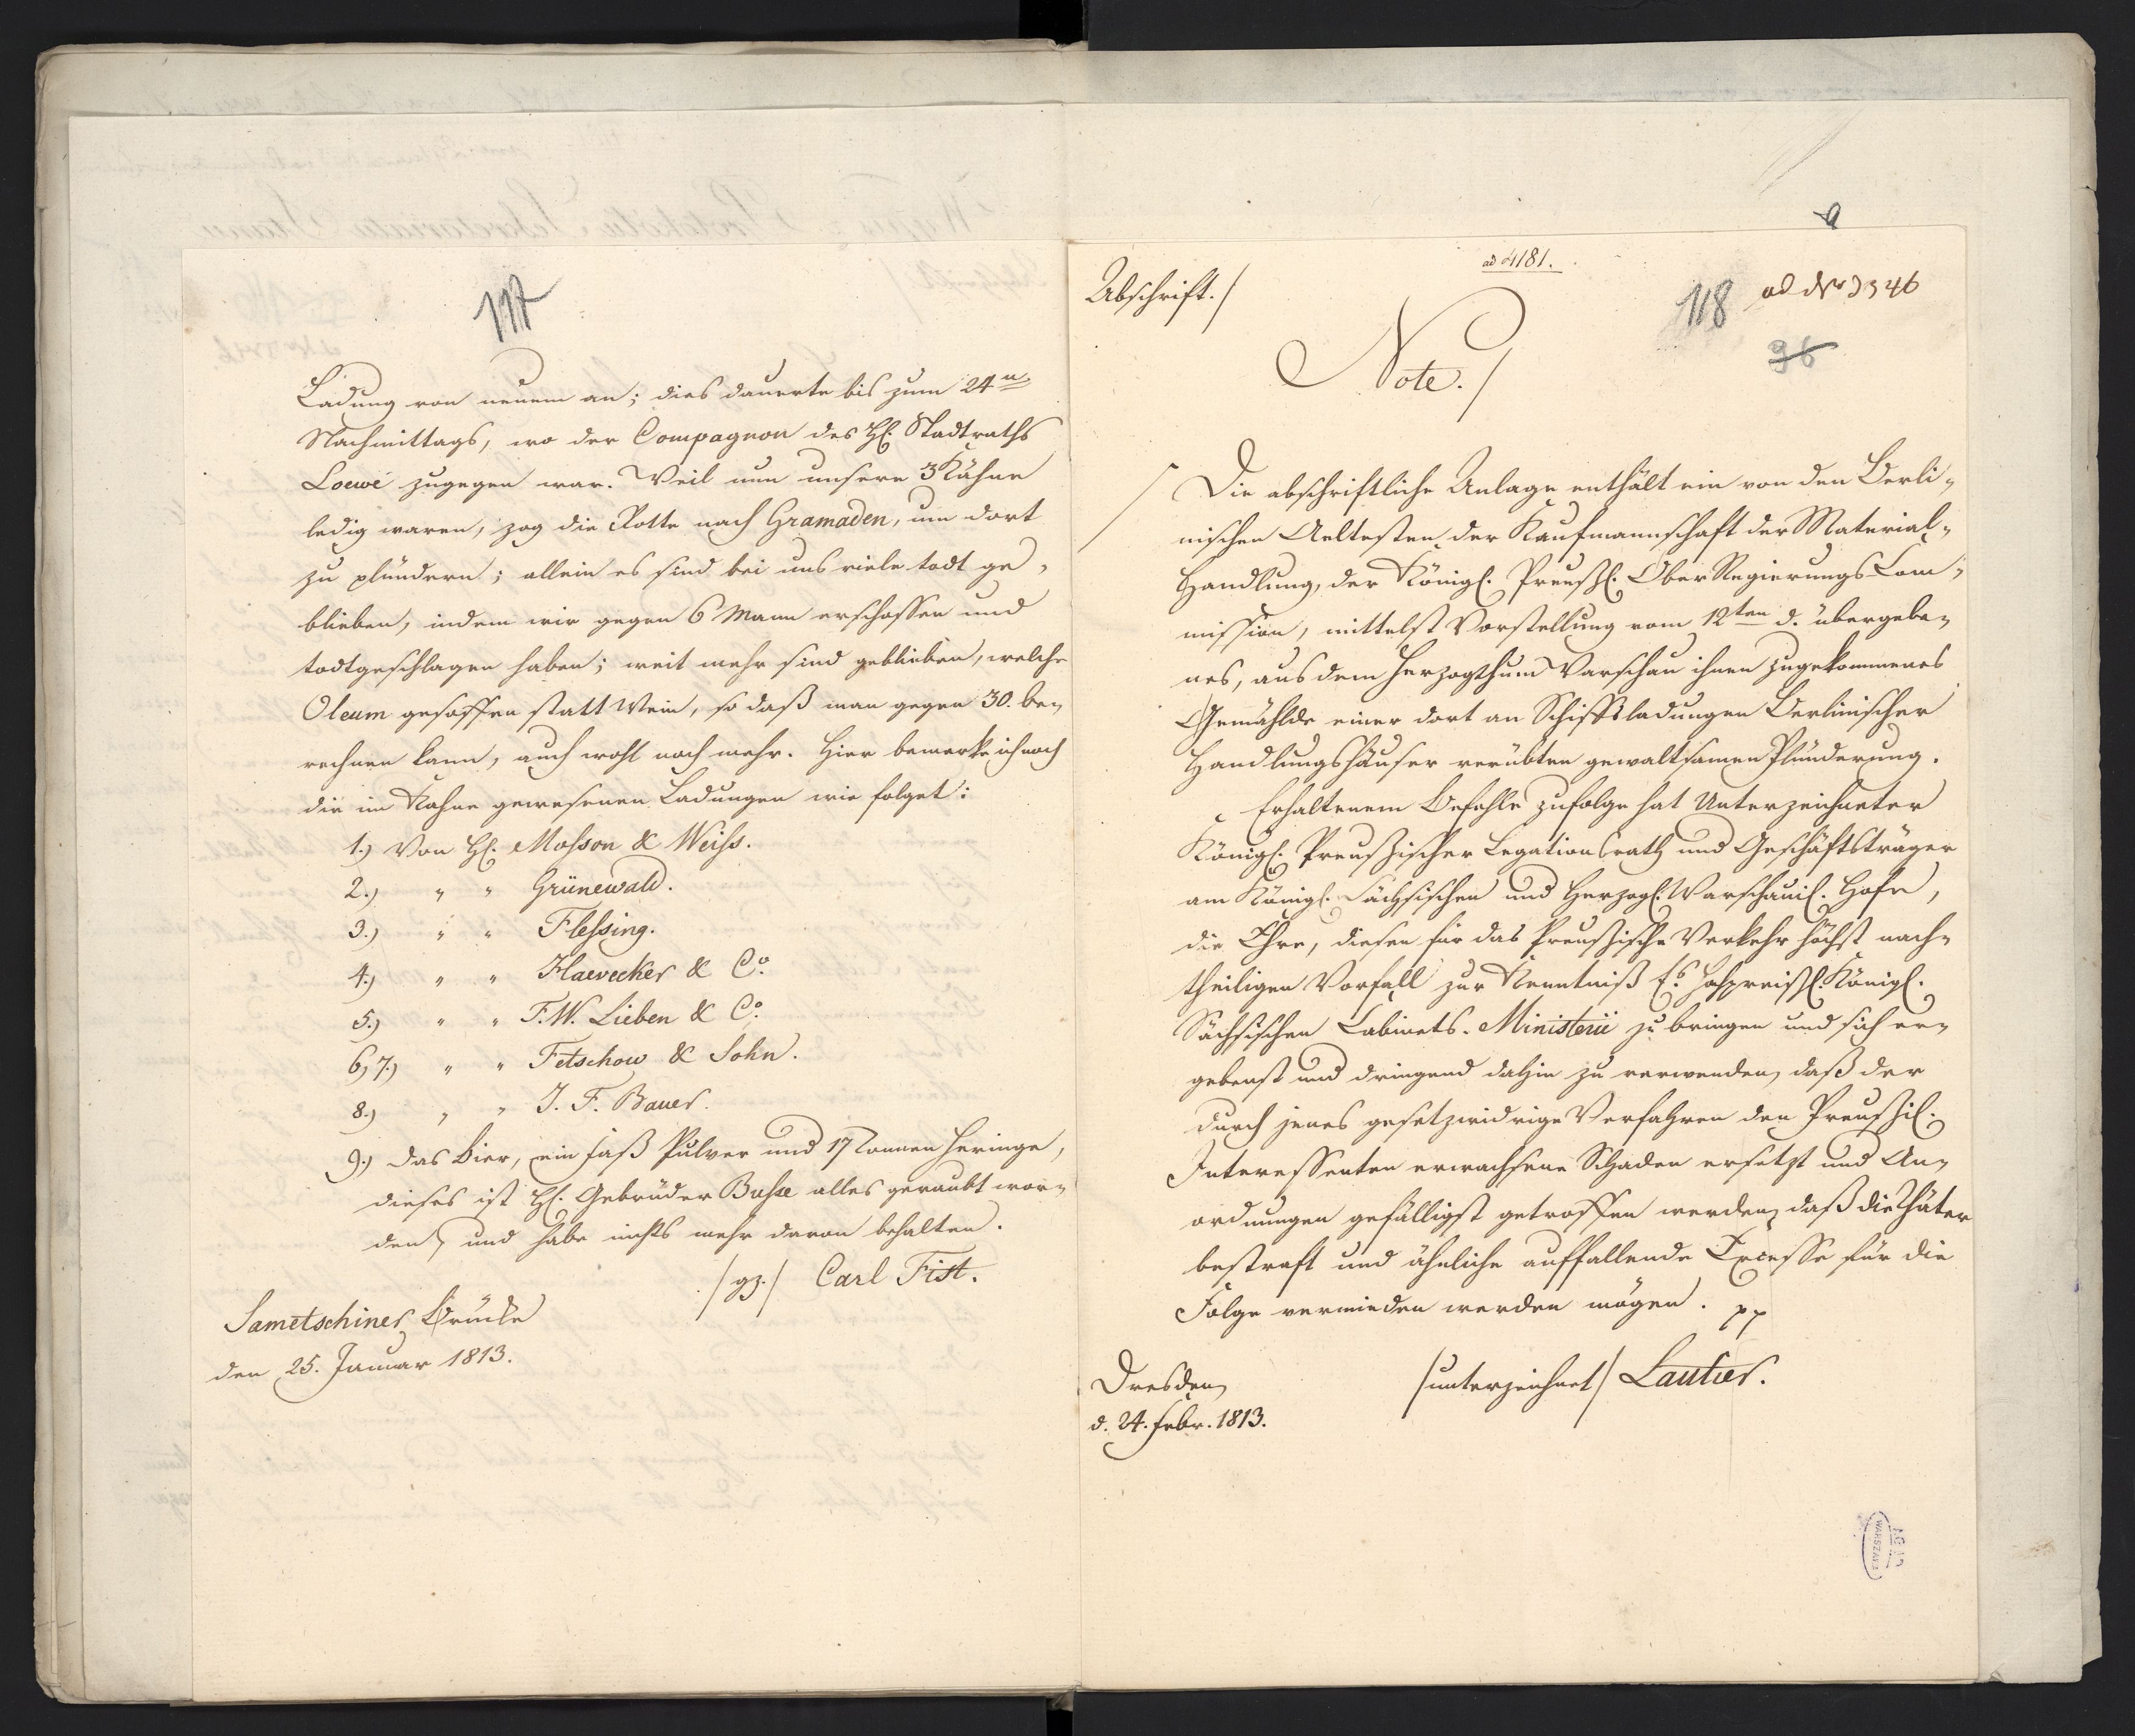 117
Ladung von neuem an; dies dauerte bis zum 24n
Nachmittags, wo der Compagnon des H. Stadtraths
Loewe zugegen war. Weil nun unsere 3 Kähne
ledig waren, zog die Rotte nach Gramaden, um dort
zu plündern; allein es sind bei uns viele todt ge-
blieben, indem wir gegen 6 Mann erschossen und
todtgeschlagen haben; weit mehr sind geblieben, welche
Oleum gesoffen statt Wein, so daß man gegen 30. be-
rechnen kann, auch wohl noch mehr. Hier bemerke ich noch
die im Kahne gewesenen Ladungen wie folget:
1.) Von H. Mosson & Weiss.
2.) " " Grünewald.
3.) " " Flessing.
4.) " " Haevecker & Co.
5.) " " F. W. Lieben & Co.
6, 7.) " " Fetschow & Sohn.
8.) " " J. F. Bauer.
9.) das Bier, ein Faß Pulver und 17 Tonnen Heringe,
dieses ist H. Gebrüder Busse alles geraubt wor-
den, und habe nichts mehr davon behalten.
/gz./ Carl Fist.
Sametschiner Brücke
den 25. Januar 1813.
ad 4181.
Abschrift./
118
ad No 3346
96
Note./
Die abschriftliche Anlage enthält ein von den Berli-
nischen Aeltesten der Kaufmannschaft der Material-
Handlung, der Königl. Preußl. Ober Regierungs Com-
mission, mittelst Vorstellung vom 12ten d. übergebe-
nes, aus dem Herzogthum Warschau ihnen zugekommenes
Gemählde einer dort an Schiffsladungen Berlinischer
Handlungshäuser verübten gewaltsamen Plünderung.
Erhaltenem Befehle zufolge hat Unterzeichneter
Königl. Preußischer Legationsrath und Geschäftsträger
am Königl. Sächsischen und Herzogl. Warschauil. Hofe,
die Ehre, diesen für das Preußische Verkehr höchst nach-
theiligen Vorfall zur Kenntniß Es. Hochpreißl. Königl.
Sächsischen Cabinets-Ministerii zu bringen und sich er-
gebenst und dringend dahin zu verwenden, daß der
durch jenes gesetzwidrige Verfahren den Preußil.
Interessenten erwachsene Schaden ersetzt und An-
ordnungen gefälligst getroffen werden, daß die Thäter
bestraft und ähnliche auffallende Excesse für die
Folge vermieden werden mögen. pp
/unterzeichnet/ Lautier.
Dresden,
d. 24. Febr. 1813.
WARSZAWA